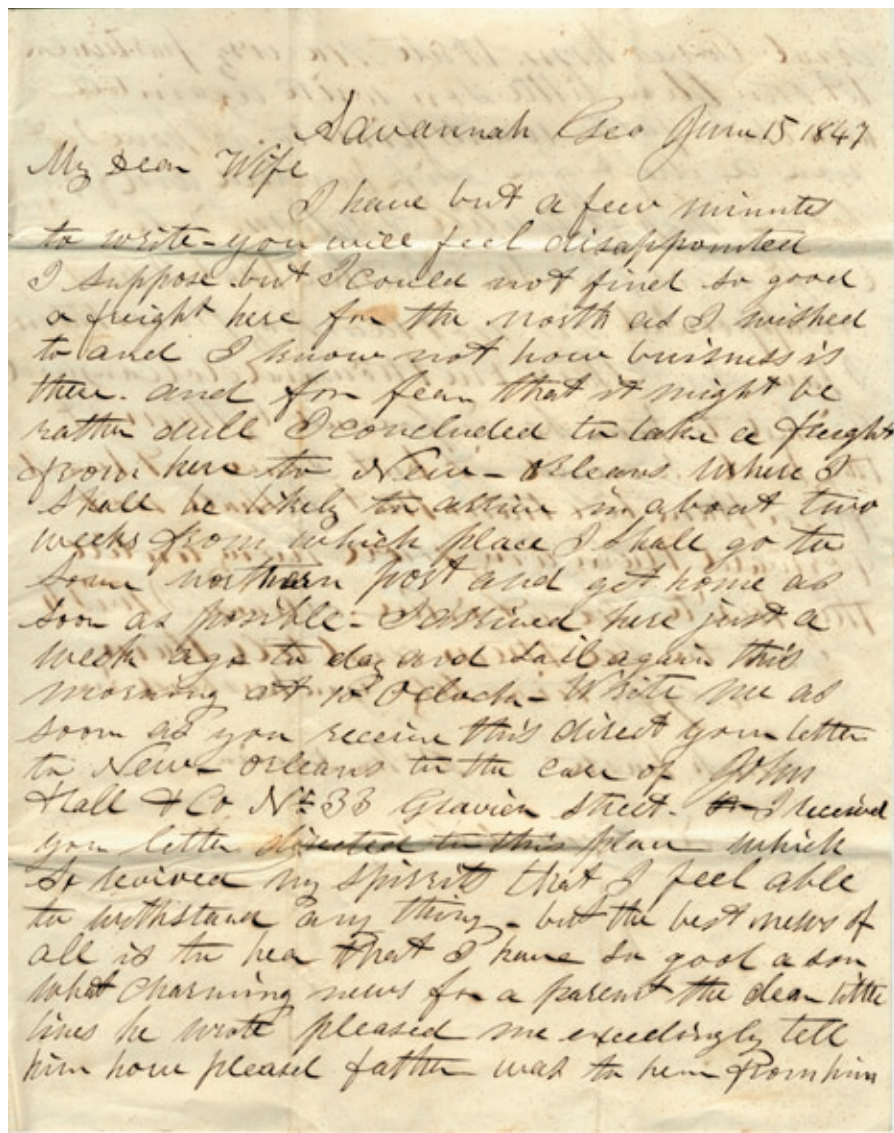 Savannah Geo June 15 1847
My Dear Wife
I have but a few minutes
to write - you will feel disappointed
I suppose but I could not find so good
a freight here for the north as I wished
to and I know not how buisness is
there. and for fear that it might be
rather dull I concluded to take a freight
from here to New-Orleans where I
shall be likely to arrive in about two
weeks from which place I shall go to
some northern port and get home as
soon as posible - I arrived here just a
week ago to day and sail again this
morning at 10 Oclock - Write me as
soon as you receive this direct your letter
to New-Orleans to the care of John
Hall & Co No 33 Gravier street - I received
you letter directed to this place which
so revived my spirrits that I feel able
to withstand any thing - but the best news of
all is to hea that I have so good a son
what charming news for a parent the dear little
lines he wrote pleased me exceedingly tell
him how pleased father was to hear from him